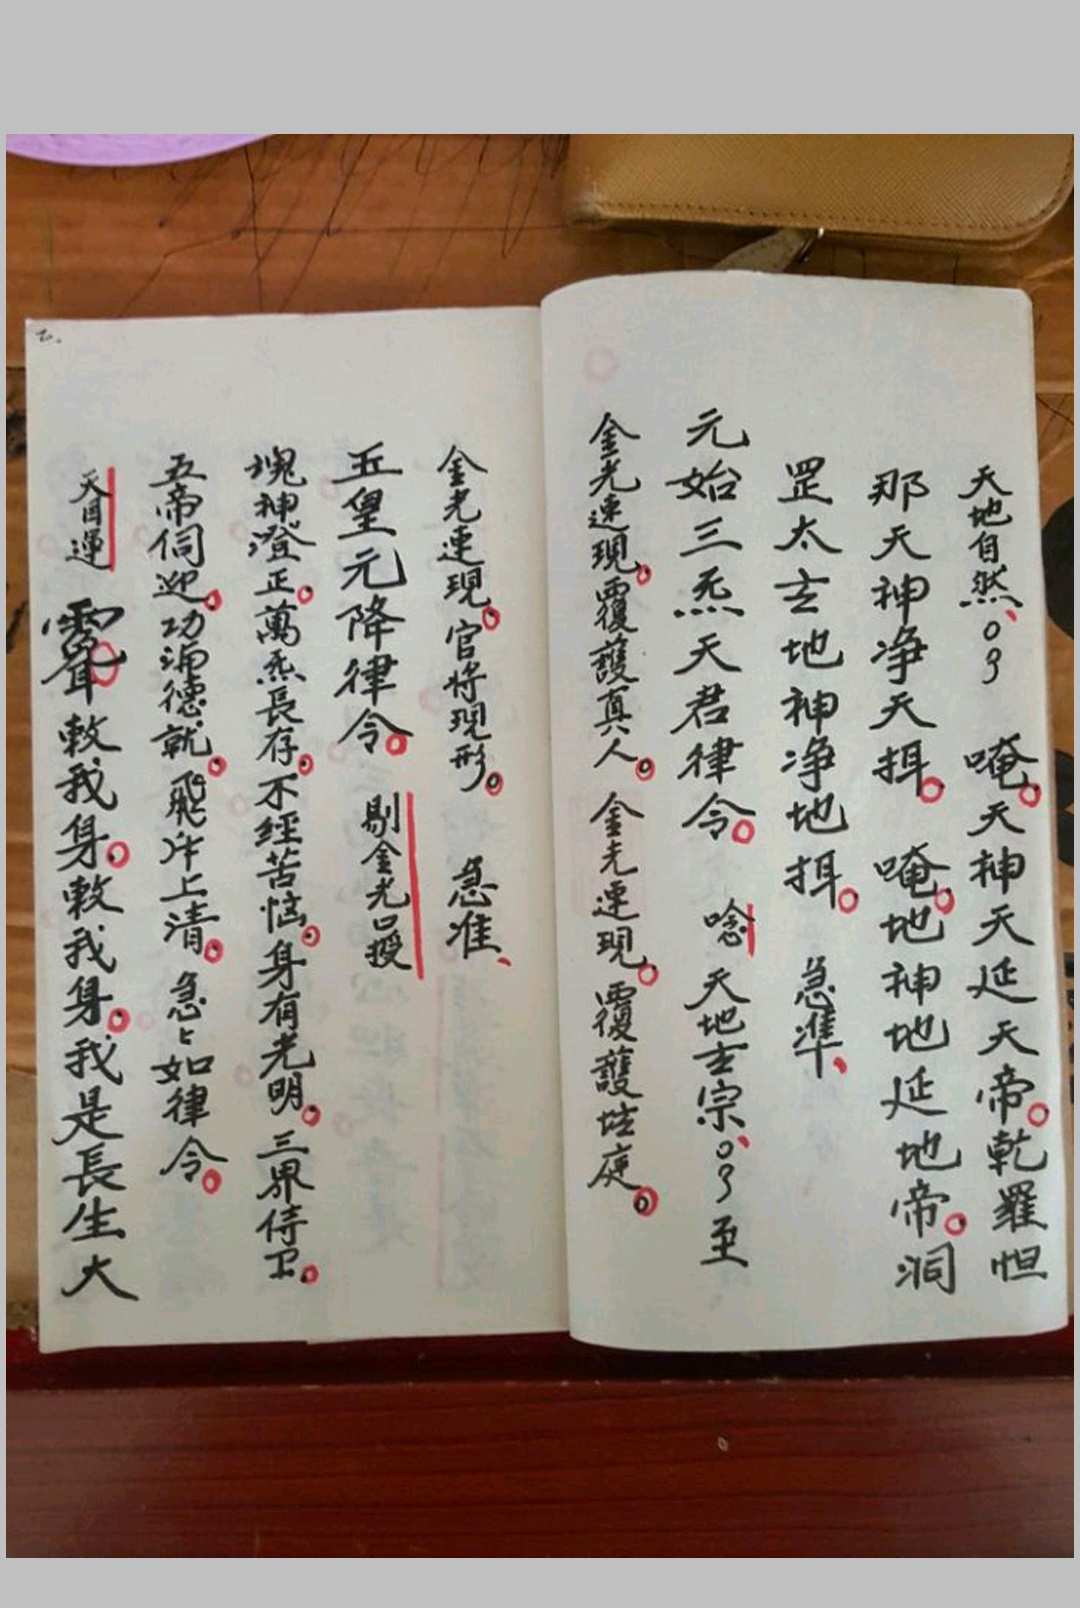 天地自然、唵。天神天延天帝。乾羅怛
那天神净天揖。唵。地神地延地帝。洞
罡太玄地神净地揖。急準、
元始三炁天君律令。唸天地玄宗、至
金光速現。覆護真人。金光速現。覆護坛庭。
金光速現。官将現形。急准、
五皇元降律令。剔金光吕授
塊神澄正。萬炁長存。不經苦惱。身有光明。三界侍卫。
五帝伺迎。功满德就。飛升上清。急々如律令。
天目運 敕我身。敕我身。我是長生大
乙。